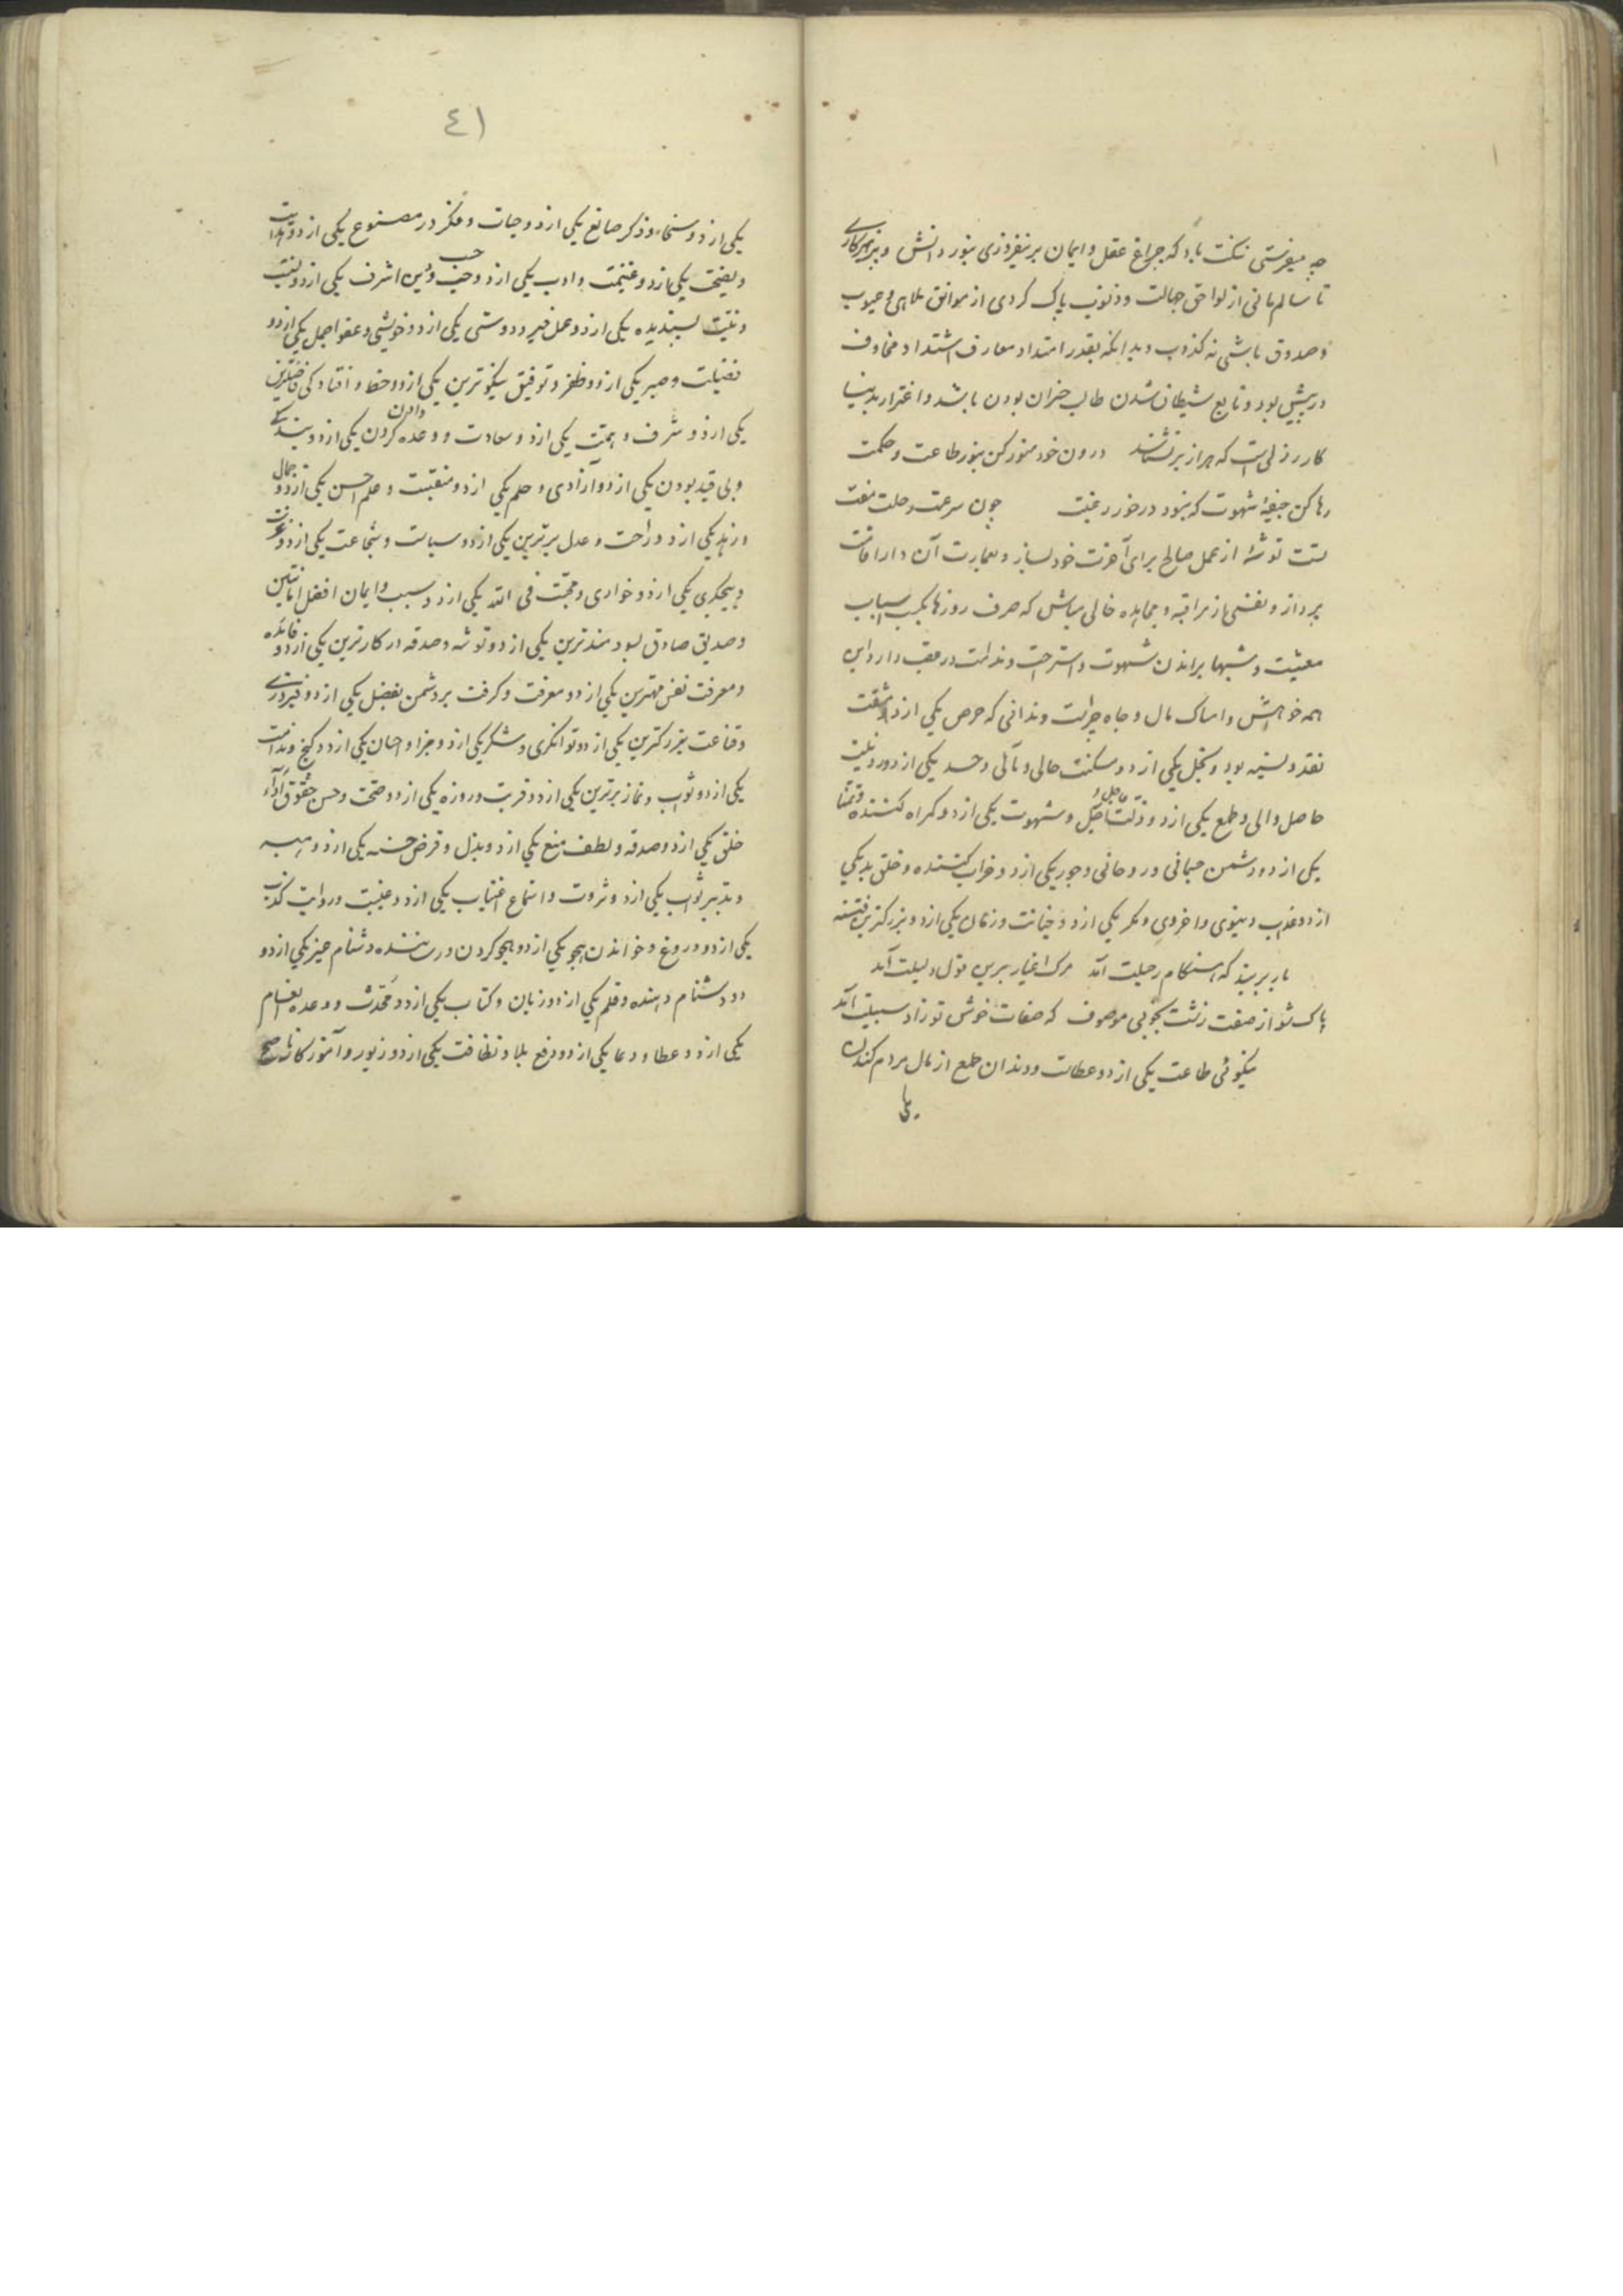 چه میفرستی نکبت باد که چراغ عقل و ایمان برنیفروزی بنور دانش و پرهیزکاری
تا سالم مانی از لواحق جهالت و ذنوب پاک کردی از موانق ملاهی و عیوب
و صدوق باشی نه کذوب و بدانکه بقدر امتداد معارف اشتداد مخاوف
در پیش بود و تابع شیطان شدن طالب خسران بودن باشد و اغترار بدنیا
کار رذلی است که هر از بر نشناسد درون خود منور کن بنور طاعت و حکمت
رها کن جیفهٔ شهوت که نبود در خور رغبت چون سرعت رحلت صفت
تست توشهٔ از عمل صالح برای آخرت خود بساز و بعمارت آن دار اقامت
پرداز و نفسی از مراقبه و مجاهده خالی مباش که صرف روزها بکسب اسباب
معیشت و شبها براندن شهوت و استراحت ندامت در عقب دارد این
همه خواهش و امساک مال و جاه چراست و ندانی که حرص یکی از دو مشقت
نقد و نسیه بود و بخل یکی از دو مسکنت حالی و مآلی و حسد یکی از دو رذیلت
حاصل والی و طمع یکی از دو ذلت عاجل و آجل و شهوت یکی از دو گمراه کننده و تمنا
یکی از دو دشمن جسمانی و روحانی و جور یکی از دو خراب کننده و خلق بد یکی
از دو عذاب دنیوی و اخروی و مکر یکی از دو خیانت و زنان یکی از دو بزرکترین فتنه
بار بربند که هنکام رحیلت آمد مرک اغیار برین قول دلیلت آمد
پاک شو از صفت زشت بخوبی موصوف که صفات خوش تو زاد سبیلت آمد
نیکوئی طاعت یکی از دو عطاست و دندان طمع از مال مردم کندن
یکی
٤١
یکی از دو سخاء و ذکر صانع یکی از دو حیات و فکر در مصنوع یکی از دو هدایت
و نصیحت یکی از دو غنیمت و ادب یکی از دو حسب و دین اشرف یکی از دو نسب
و نیت پسندیده یکی از دو عمل خیر و دوستی یکی از دو خویشی و عفو اجمل یکی از دو
فضیلت و صبر یکی از دو ظفر و توفیق نیکوترین یکی از دو حظ و افتادگی فاضلترین
یکی از دو شرف و همت یکی از دو سعادت و وعده کردن یکی از دو بندگی
و بی قید بودن یکی از دو آزادی و حلم یکی از دو منقبت و علم احسن یکی از دو جمال
و زهد یکی از دو راحت و عدل برترین یکی از دو سیاست و شجاعت یکی از دو عزت
و بیجگری یکی از دو خواری و محبت فی الله یکی از دو سبب و ایمان افضل امانتین
و صدیق صادق سودمندترین یکی از دو توشه و صدقه در کارترین یکی از دو فایده
و معرفت نفس مهترین یکی از دو معرفت و کرفت بر دشمن بفضل یکی از دو فیروزی
و قناعت بزرکترین یکی از دو توانکری و شکر یکی از دو جزا و احسان یکی از دو گنج و ندامت
یکی از دو توبه و نماز برترین یکی از دو قربت و روزه یکی از دو صحت و حسن حقوق اداء
خلق یکی از دو صدقه و لطف منع یکی از دو بذل و قرض حسنه یکی از دو هبه
و تدبیر ثواب یکی از دو ثروت و استماع اغتیاب یکی از دو غیبت و روایت کذب
یکی از دو دروغ و خواندن هجو یکی از دو هجو کردن و رسننده دشنام خیز یکی از دو
دو دشنام دهنده و قلم یکی از دو زبان و کتاب یکی از دو محدث و وعده بانعام
یکی از دو عطا و دعا یکی از دو دفع بلا و نظافت یکی از دو زیور و آموزکار ناصح